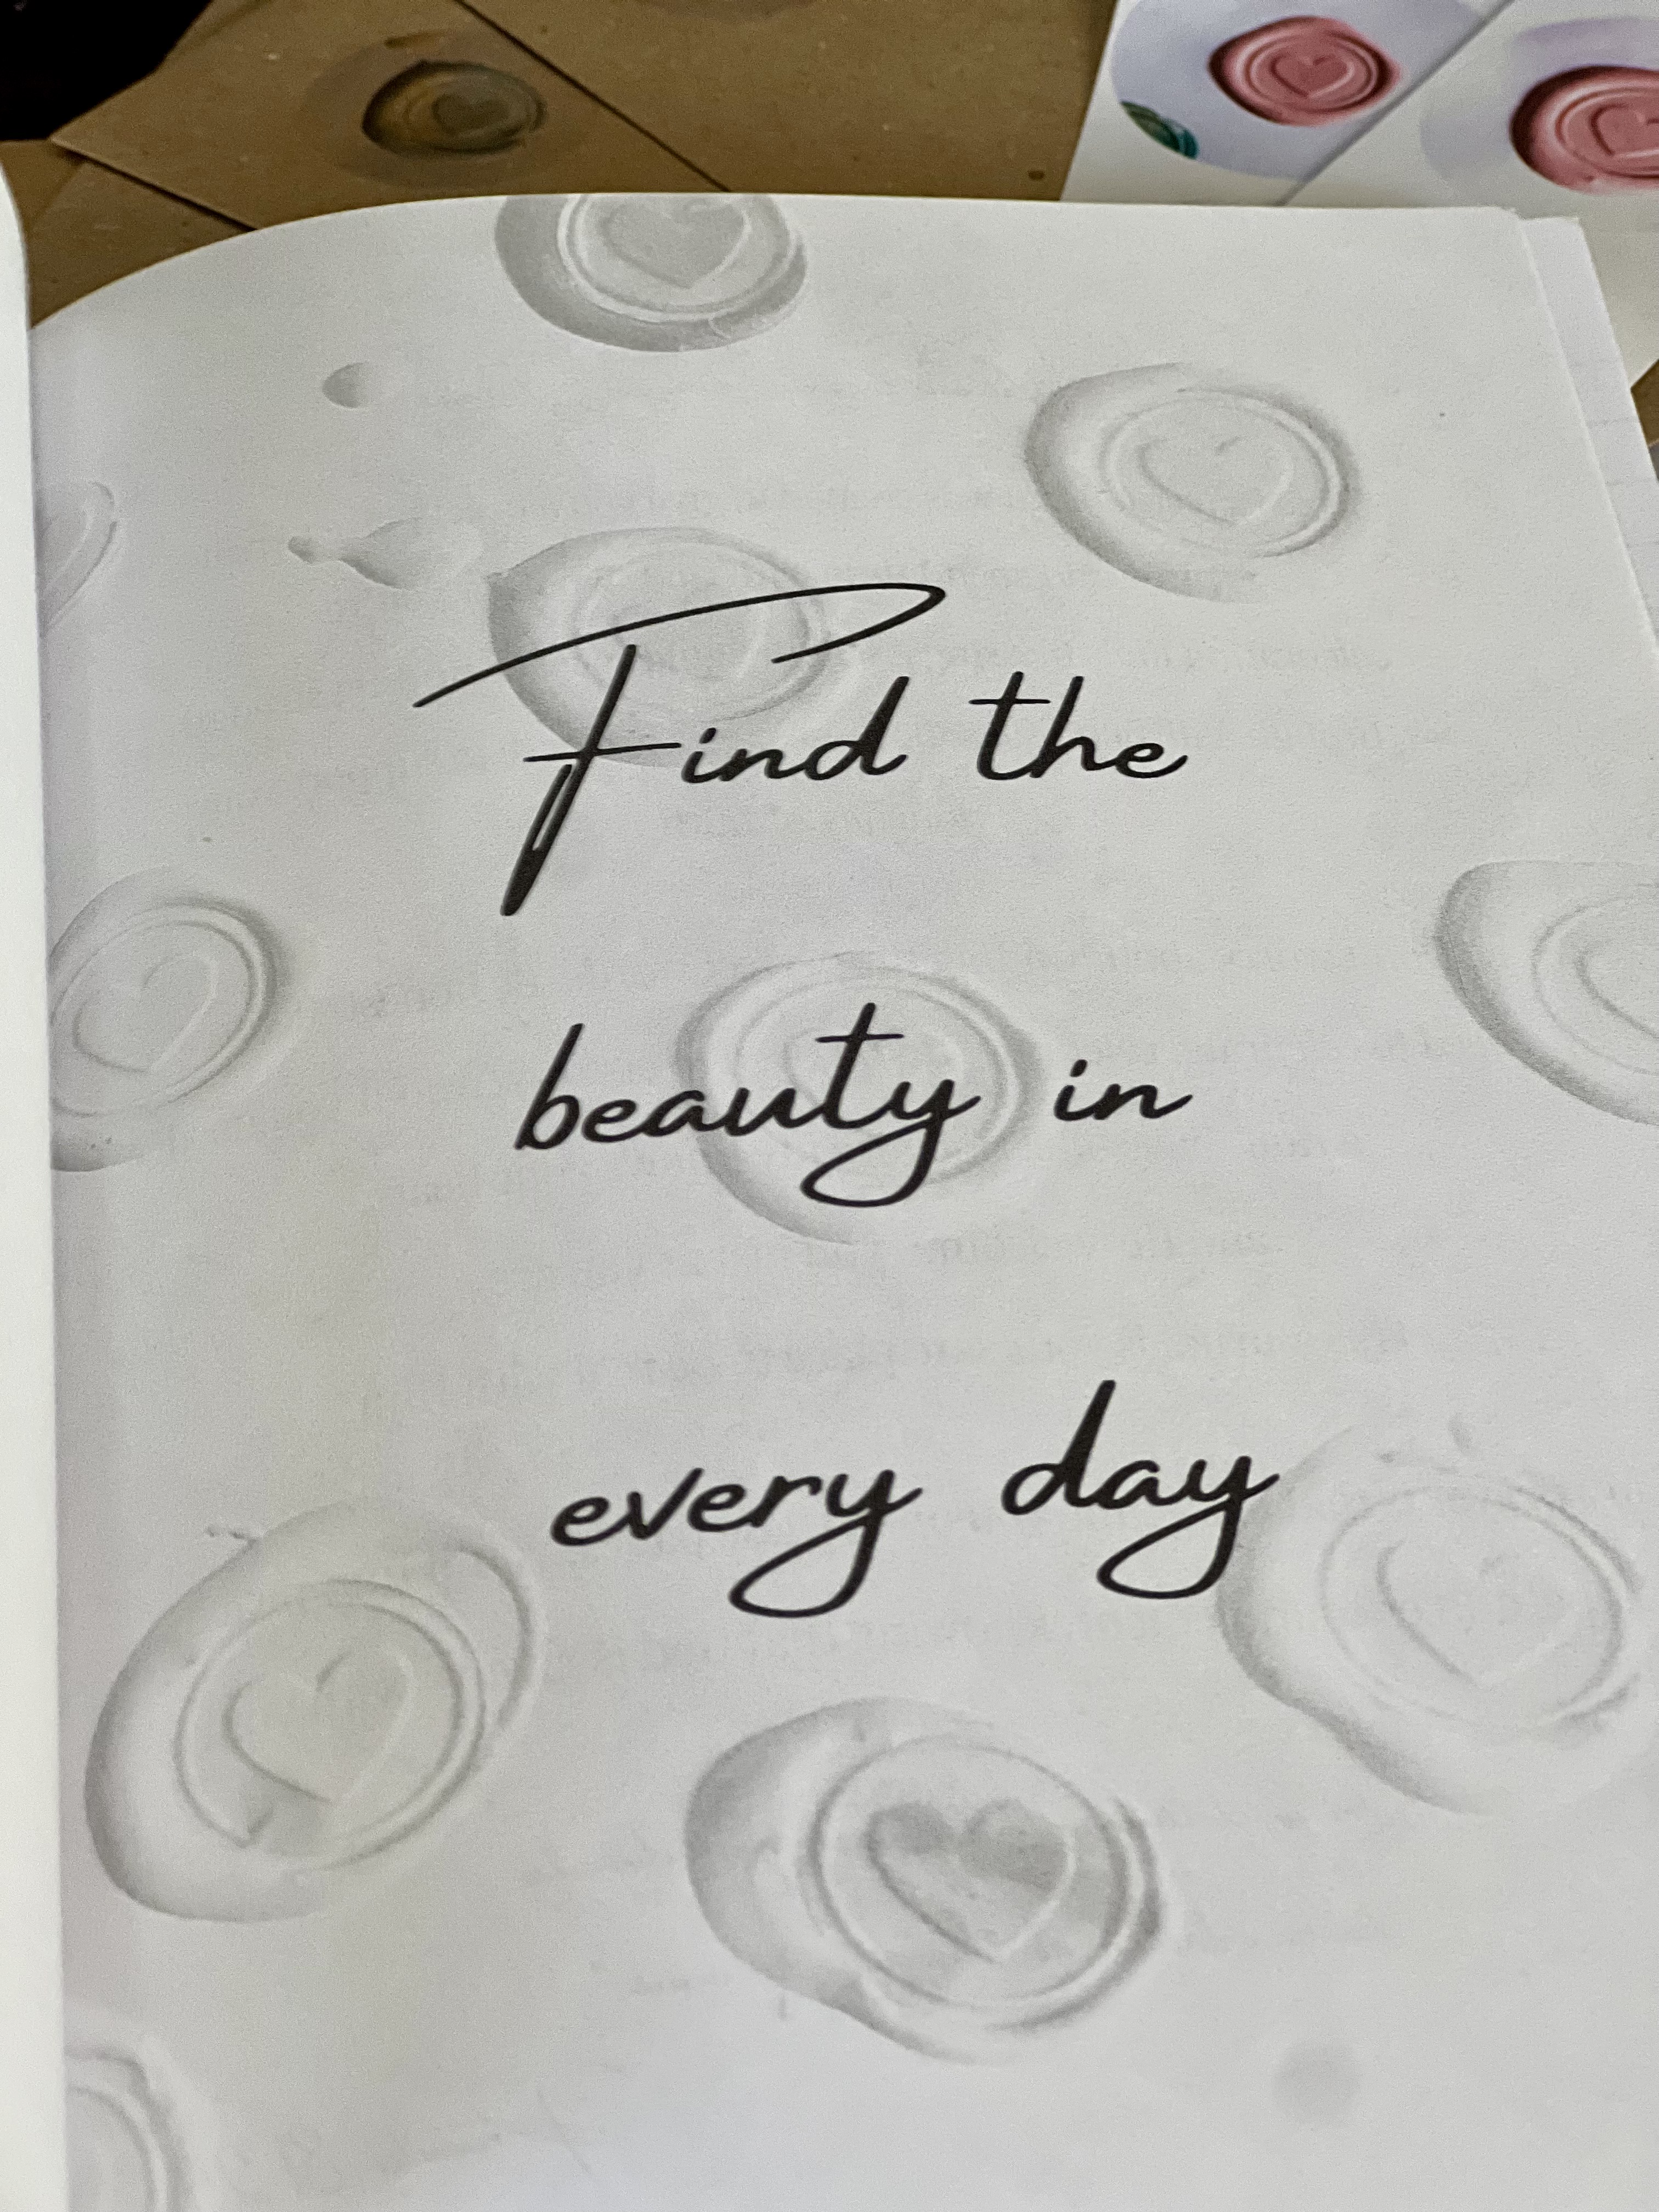 Find the
beauty in
every day